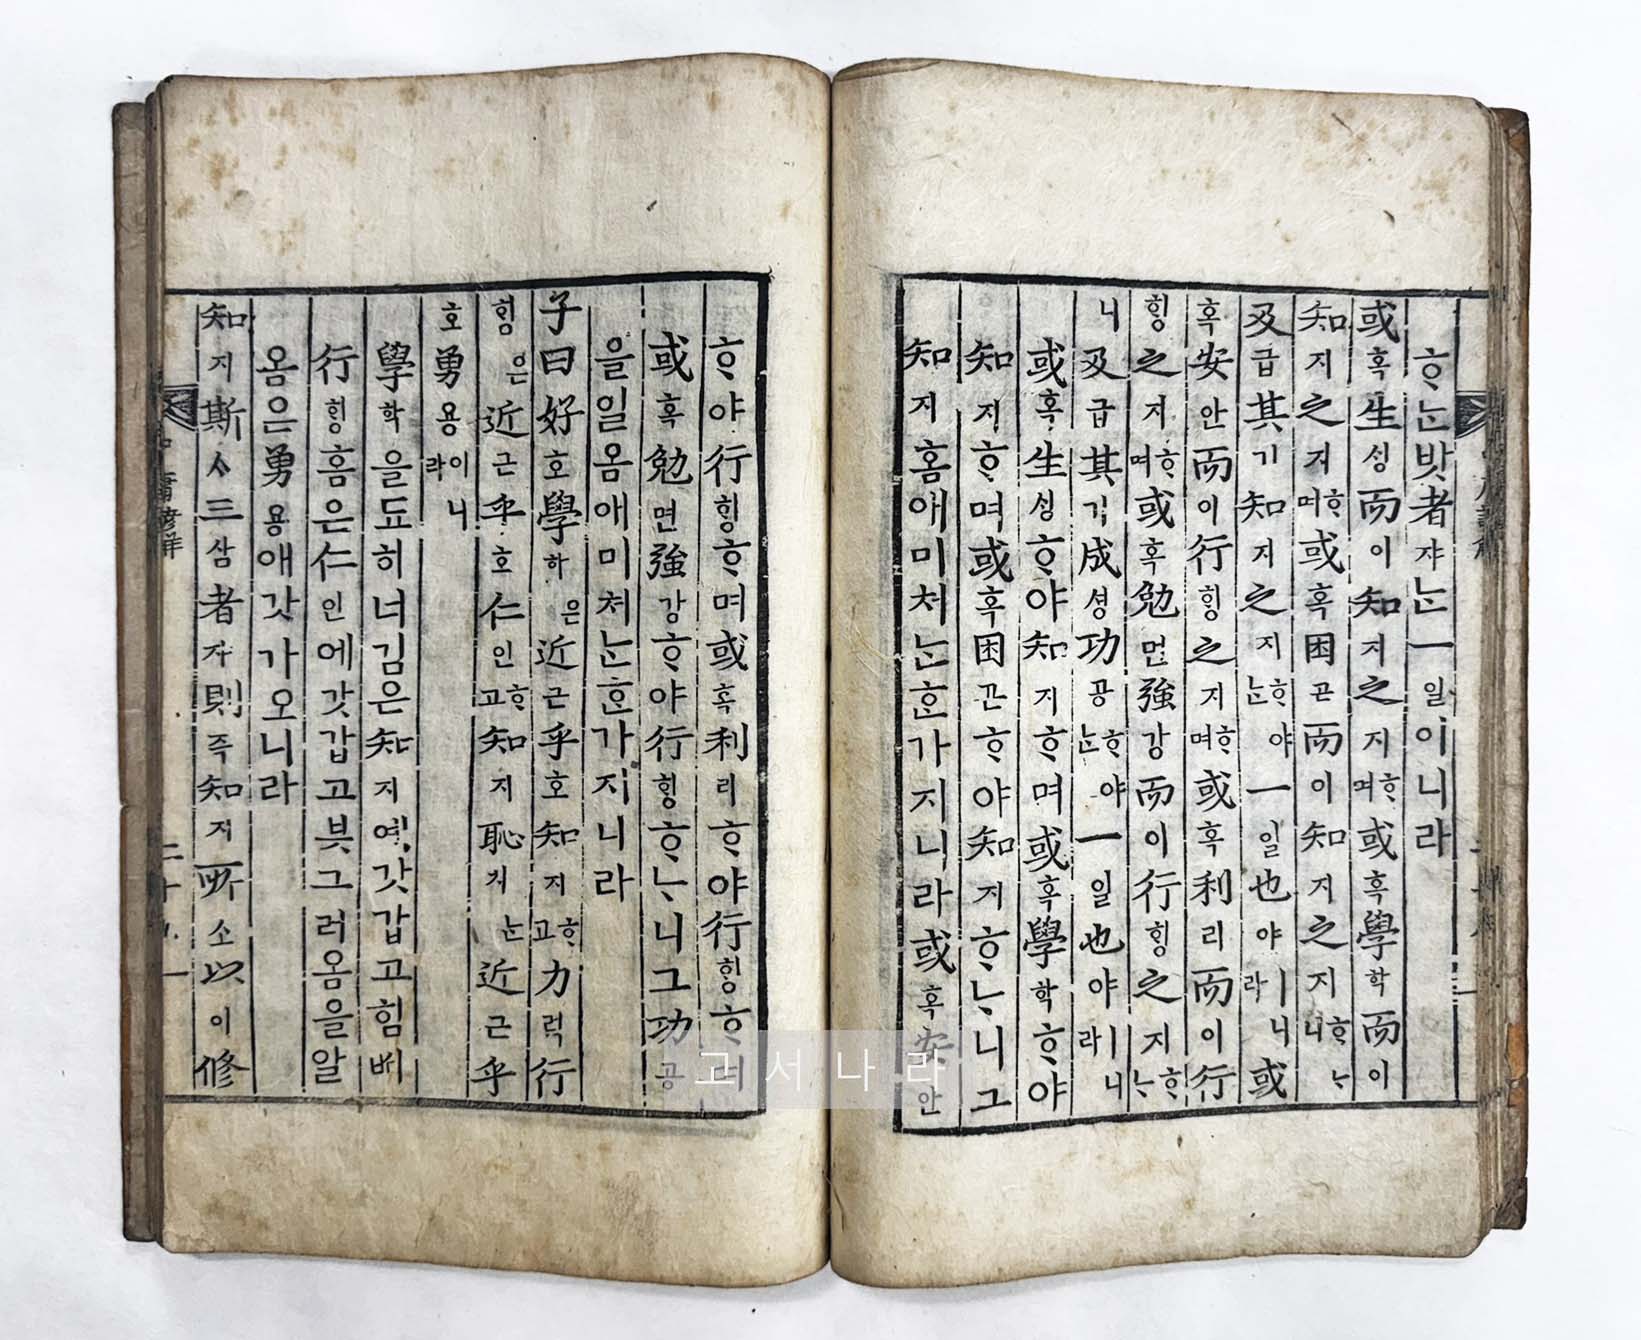 ᄒᆞᄂᆞᆫ밧者쟈ᄂᆞᆫ一일이니라
或혹生ᄉᆡᆼ而이知지之지ᄒᆞ며或혹學학而이
知지之지ᄒᆞ며或혹困곤而이知지之지ᄒᆞᄂᆞ니
及급其기知지之지ᄒᆞ야ᄂᆞᆫ一일也야ㅣ니라或
혹安안而이行ᄒᆡᆼ之지ᄒᆞ며或혹利리而이行
ᄒᆡᆼ之지ᄒᆞ며或혹勉면強강而이行ᄒᆡᆼ之지ᄒᆞᄂᆞ
니及급其기成셩功공ᄒᆞ야ᄂᆞᆫ一일也야ㅣ니라
或혹生ᄉᆡᆼᄒᆞ야知지ᄒᆞ며或혹學학ᄒᆞ야
知지ᄒᆞ며或혹困곤ᄒᆞ야知지ᄒᆞᄂᆞ니그
知지홈애미쳐ᄂᆞᆫᄒᆞᆫ가지니라或혹安안
ᄒᆞ야行ᄒᆡᆼᄒᆞ며或혹利리ᄒᆞ야行ᄒᆡᆼᄒᆞ며
或혹勉면強강ᄒᆞ야行ᄒᆡᆼᄒᆞᄂᆞ니그功공
을일옴애미쳐ᄂᆞᆫᄒᆞᆫ가지니라
子曰好호學학은近근乎호知지ᄒᆞ고力력行
ᄒᆡᆼ은近근乎호仁인ᄒᆞ고知지恥치ᄂᆞᆫ近근乎
호勇용이니라
學학을됴히너김은知지예갓갑고힘ᄡᅥ
行ᄒᆡᆼ홈은仁인에갓갑고븟그러옴을알
옴은勇용애갓가오니라
知지斯ᄉᆞ三삼者쟈則즉知지所소以이修
中庸諺解
고서나라